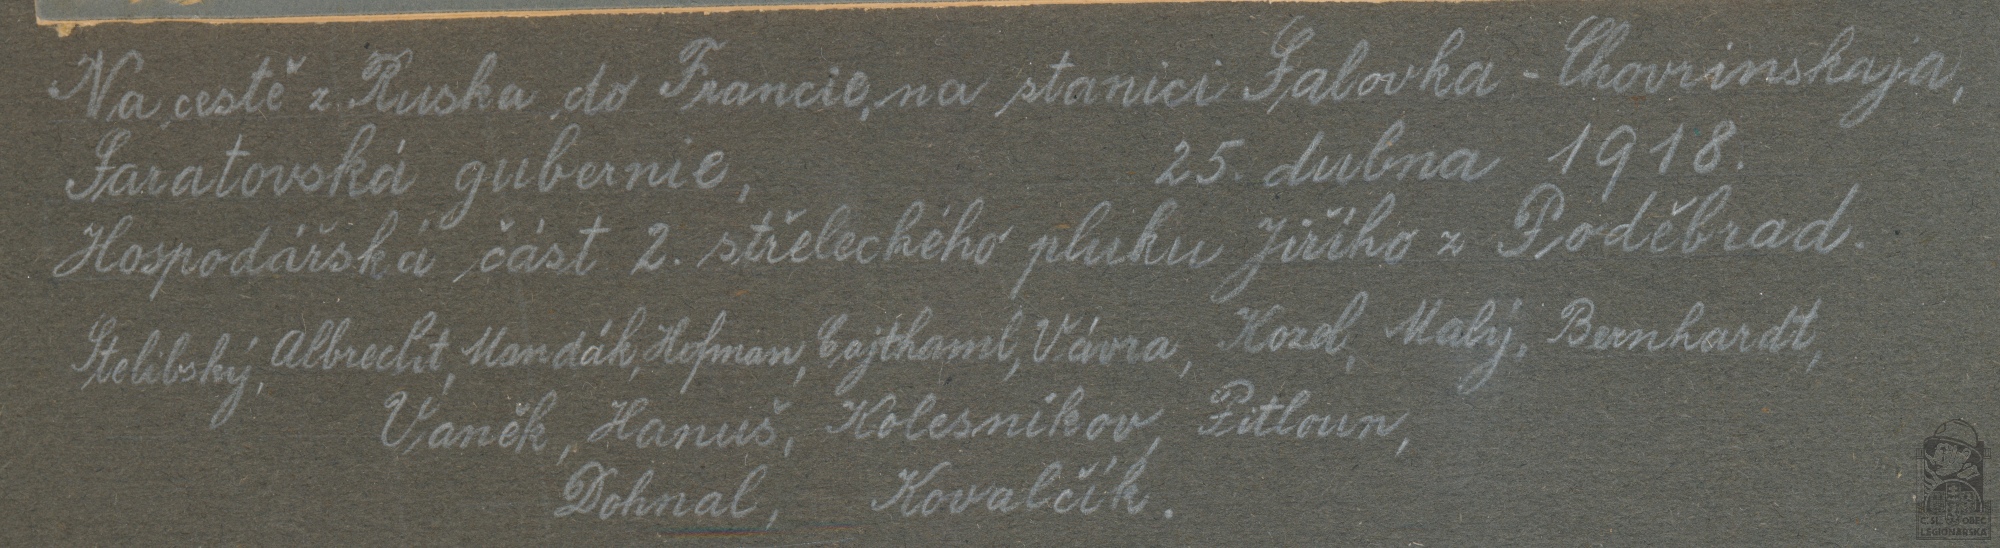 Na cestě z Ruska do Francie, na stanici Salovka - Chovrinskaja,
Saratovská gubernie, 25. dubna 1918.
Hospodářská část 2. střeleckého pluku Jiřího z Poděbrad.
Stelibský, Albrecht, Mandák, Hofman, Cajthaml, Vávra, Kozel, Malý, Bernhardt,
Vaněk, Hanuš, Kolesnikov, Pitloun,
Dohnal, Kovalčík.
Č. SL. OBEC
LEGIONÁŘSKÁ